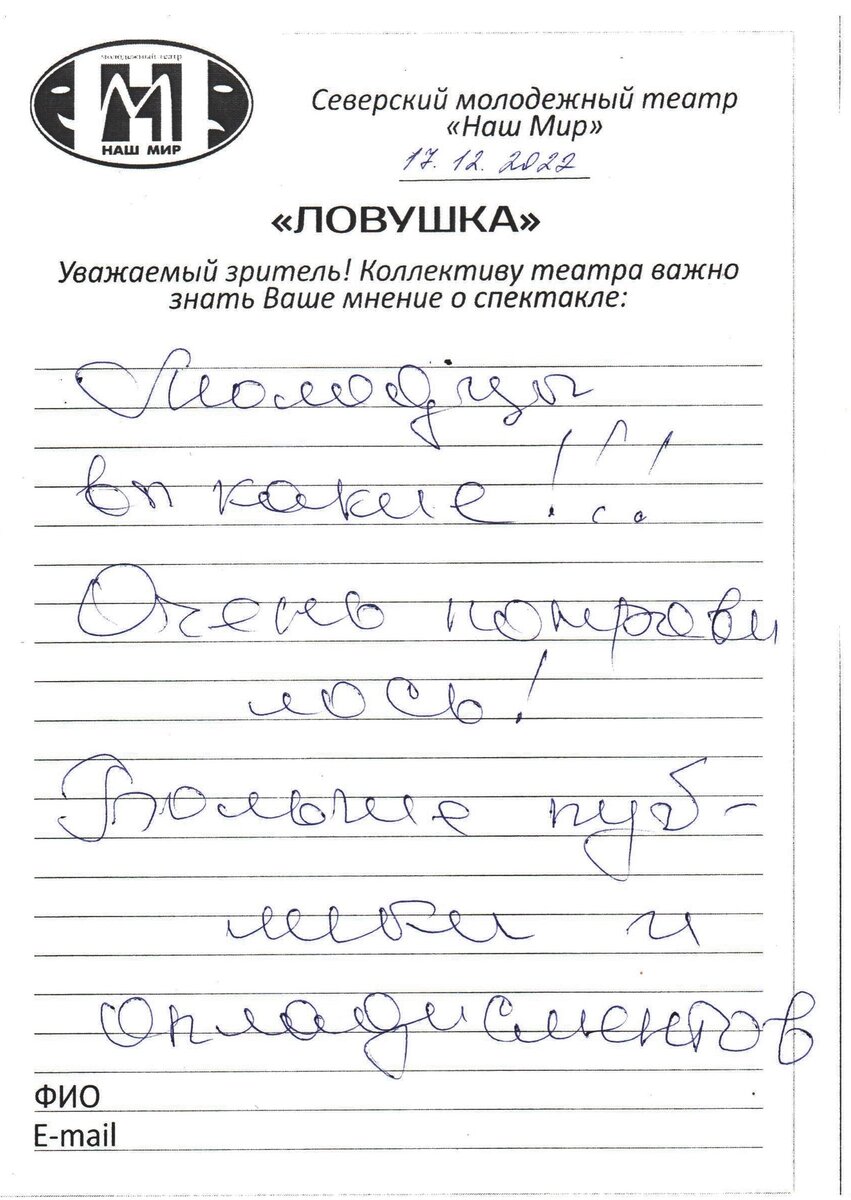 молодежный театр
НАШ МИР
Северский молодежный театр
«Наш Мир»
17.12.2022
«ЛОВУШКА»
Уважаемый зритель! Коллективу театра важно
знать Ваше мнение о спектакле:
Молодцы
вы какие!!!
Очень понрави
лось!
Больше пуб-
лики и
оплодисментов
ФИО
E-mail